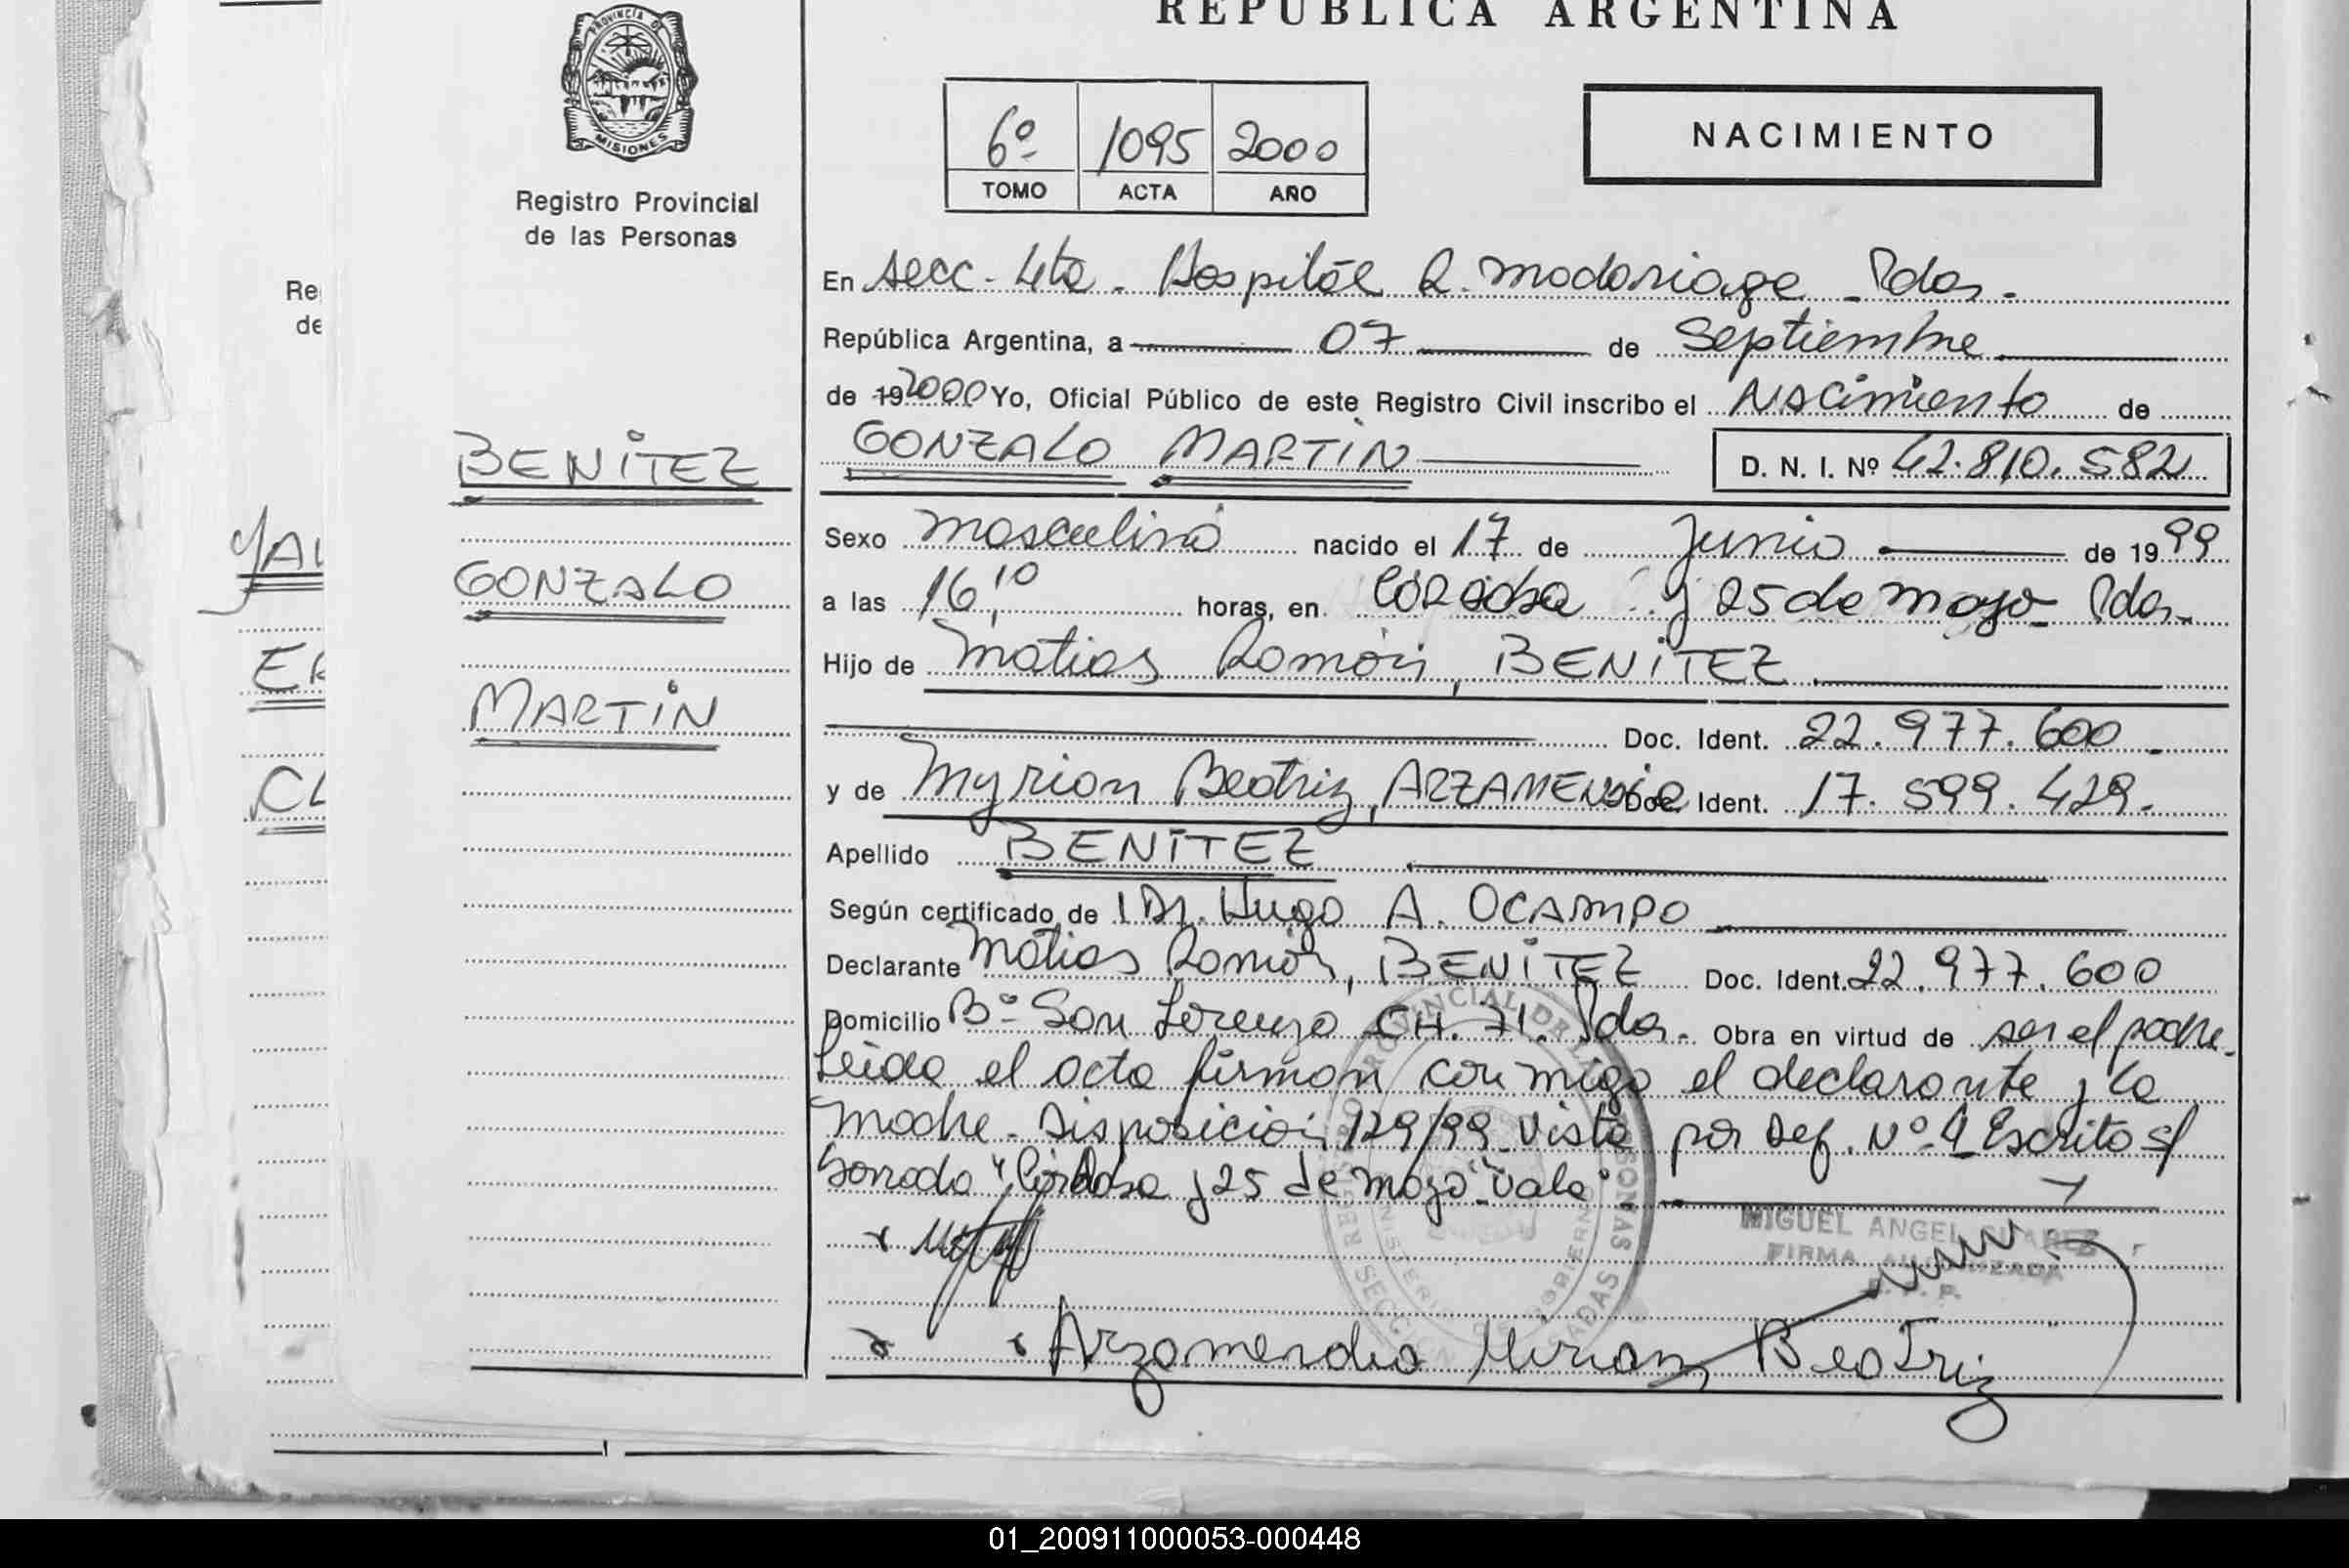 REPUBLICA ARGENTINA
PROVINCIA DE
MISIONES
Registro Provincial
de las Personas
6º 1095 2000
TOMO ACTA AÑO
NACIMIENTO
En secc. 4ta. Hospital R. Madariaga - Pdas.
República Argentina, a 07 de Septiembre
de 19 2000 Yo, Oficial Público de este Registro Civil inscribo el Nacimiento de
GONZALO MARTIN D. N. I. Nº 42.810.582
BENITEZ
GONZALO
MARTIN
Sexo masculino nacido el 17 de Junio de 1999
a las 16,10 horas, en Córdoba y 25 de mayo - Pdas.
Hijo de Matias Ramón, BENITEZ
Doc. Ident. 22.977.600
y de Myrian Beatriz, ARZAMENDIA Doc. Ident. 17.599.429.
Apellido BENITEZ
Según certificado de Dr. Hugo A. OCAMPO
Declarante Matias Ramón, BENITEZ Doc. Ident. 22.977.600
Domicilio Bº San Lorenzo CH. 71. Pdas. Obra en virtud de ser el padre.
Leida el acta firman conmigo el declarante y la
madre. Disposición 129/99 Vista por Def. Nº 4 Escrito s/
borrado "Córdoba y 25 de mayo" Vale.
MIGUEL ANGEL SUAREZ
FIRMA AUTORIZADA
R. P. P.
Arzamendia Mirian Beatriz
Re
de
YAL
ER
CL
01_200911000053-000448